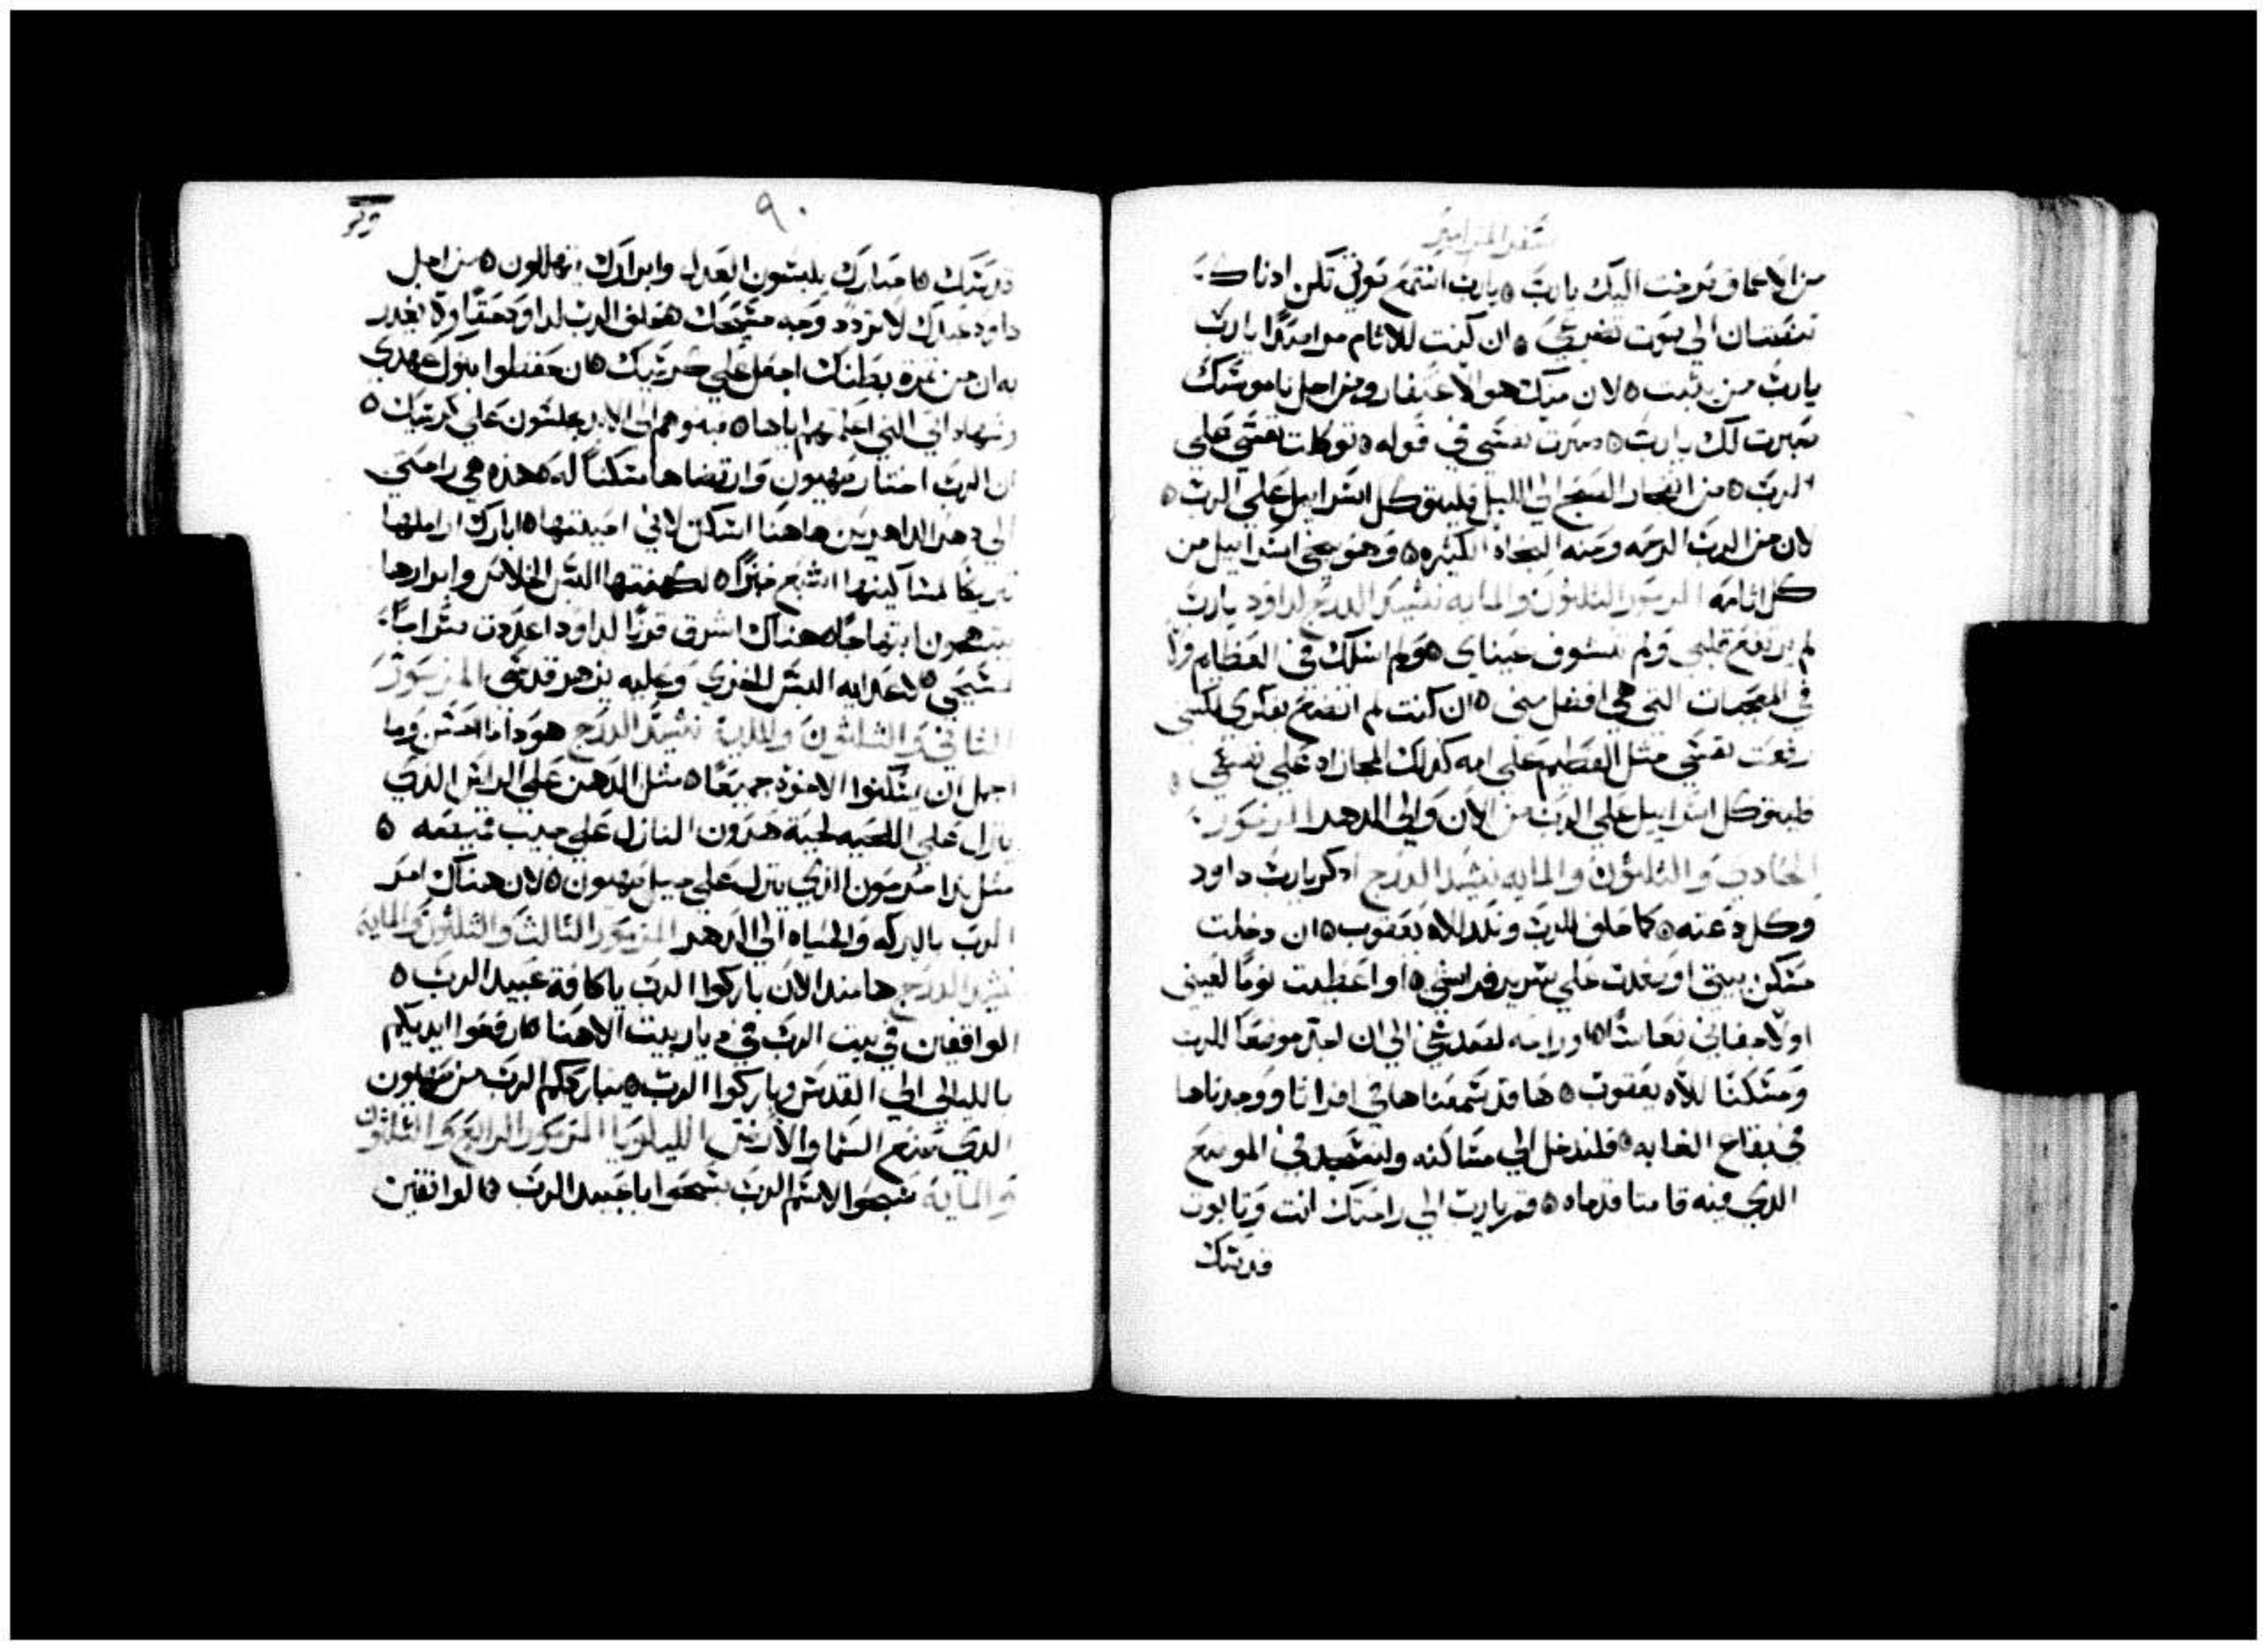 سفر المزامير
من الاعماق صرخت اليك يارب ٥ يارب استمع صوتي تكن ادناك
تنصتان الي صوت تضرعي ٥ ان كنت للاثام مراصدًا يارب
يارب من يثبت ٥ لان منك هو الاغتفار ومن اجل ناموسك
صبرت لك يارب ٥ صبرت نفسي في قوله ٥ توكلت نفسي علي
الرب ٥ من انفجار الصبح الي الليل فليتوكل اسراييل علي الرب ٥
لان من الرب الرحمه ومنه النجاه الكثيره ٥ وهو ينجي اسراييل من
كل اثامه المزمور الثلثون والمايه نشيد الدرج لداود يارب
لم يرتفع قلبي ولم تشوف عيناي ٥ ولم اسلك في العظايم ولا
في المعجبات التي هي افضل مني ٥ ان كنت لم اتضع بفكري لكنني
رفعت نفسي مثل الفطيم علي امه كذلك المجازاه علي نفسي ٥
فليتوكل اسراييل علي الرب من الان والي الدهر المزمور
الحادي والثلثون والمايه نشيد الدرج ادكر يارب داود
وكل دعته ٥ كما حلف للرب ونذر لالاه يعقوب ٥ ان دخلت
مسكن بيتي او صعدت علي سرير فراشي ٥ او اعطيت نومًا لعيني
او لاجفاني نعاسًا ٥ او راحه لصدغي الي ان اجد موضعًا للرب
ومسكنًا لالاه يعقوب ٥ ها قد سمعنا ها في افراثا ووجدناها
في بقاع الغابه ٥ فلندخل الي مساكنه ولنسجد في الموضع
الدي فيه قامتا قدماه ٥ قم يارب الي راحتك انت وتابوت
قدسك
٩٠
قدسك ٥ احبارك يلبسون العدل وابرارك يتهللون ٥ من اجل
داود عبدك لا تردد وجه مسيحك حلف الرب لداود حقًا ولا يغدر
به ان من ثمرة بطنك اجعل علي كرسيك ٥ ان حفظوا بنوك عهدي
وشهاداتي التي اعلمهم اياها ٥ فبنوهم الي الابد يجلسون علي كرسيك ٥
ان الرب اختار صهيون وارتضاها مسكنًا له ٥ هذه هي راحتي
الي دهر الداهرين هاهنا اسكن لاني احببتها ٥ ابارك اراملها
تبريكا لمساكينها اشبع خبزًا ٥ لكهنتها البس الخلاص وابرارها
يبتهجون ابتهاجًا ٥ هناك اشرق قرنًا لداود اعددت سراجًا
لمسيحي ٥ لاعدايه البس الخزي وعليه يزهر قدسي المزمور
الثاني والثلثون والمايه نشيد الدرج هودا ما احسن وما
اجمل ان يسكنوا الاخوه جميعًا ٥ مثل الدهن علي الراس الذي
ينزل علي اللحيه لحية هرون النازل علي جيب قميصه ٥
مثل ندا حرمون الذي ينزل علي جبل صهيون ٥ لان هناك امر
الرب بالبركه والحياه الي الدهر المزمور الثالث والثلثون والمايه
نشيد الدرج ها مند الان باركوا الرب ياكافة عبيد الرب ٥
الواقفين في بيت الرب في ديار بيت الاهنا ٥ ارفعوا ايديكم
بالليالي الي القدس وباركوا الرب ٥ يبارككم الرب من صهيون
الدي صنع السما والارض الليلويا المزمور الرابع والثلثون
والمايه سبحوا لاسم الرب سبحوا يا عبيد الرب ٥ الواقفين